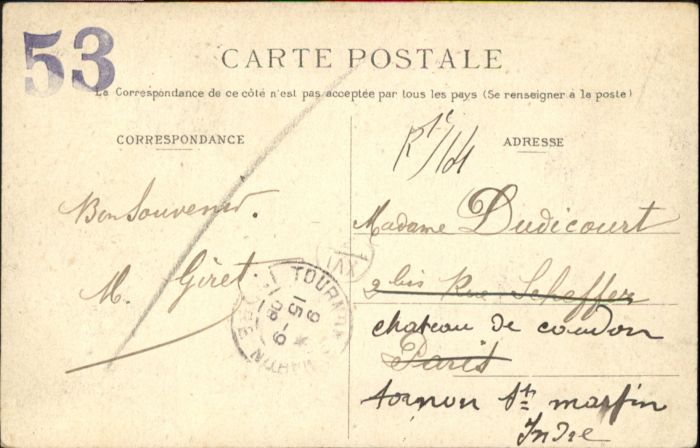 53
CARTE POSTALE
La Correspondance de ce côté n'est pas acceptée par tous les pays (Se renseigner à la poste)
CORRESPONDANCE
ADRESSE
Bon Souvenir.
M. Géret.
Madame Dudicourt
2 bis Rue Scheffer
chateau de coudon
Paris
tornon St martin
Indre
TOURN
MARTIN
15-9
08
XVI